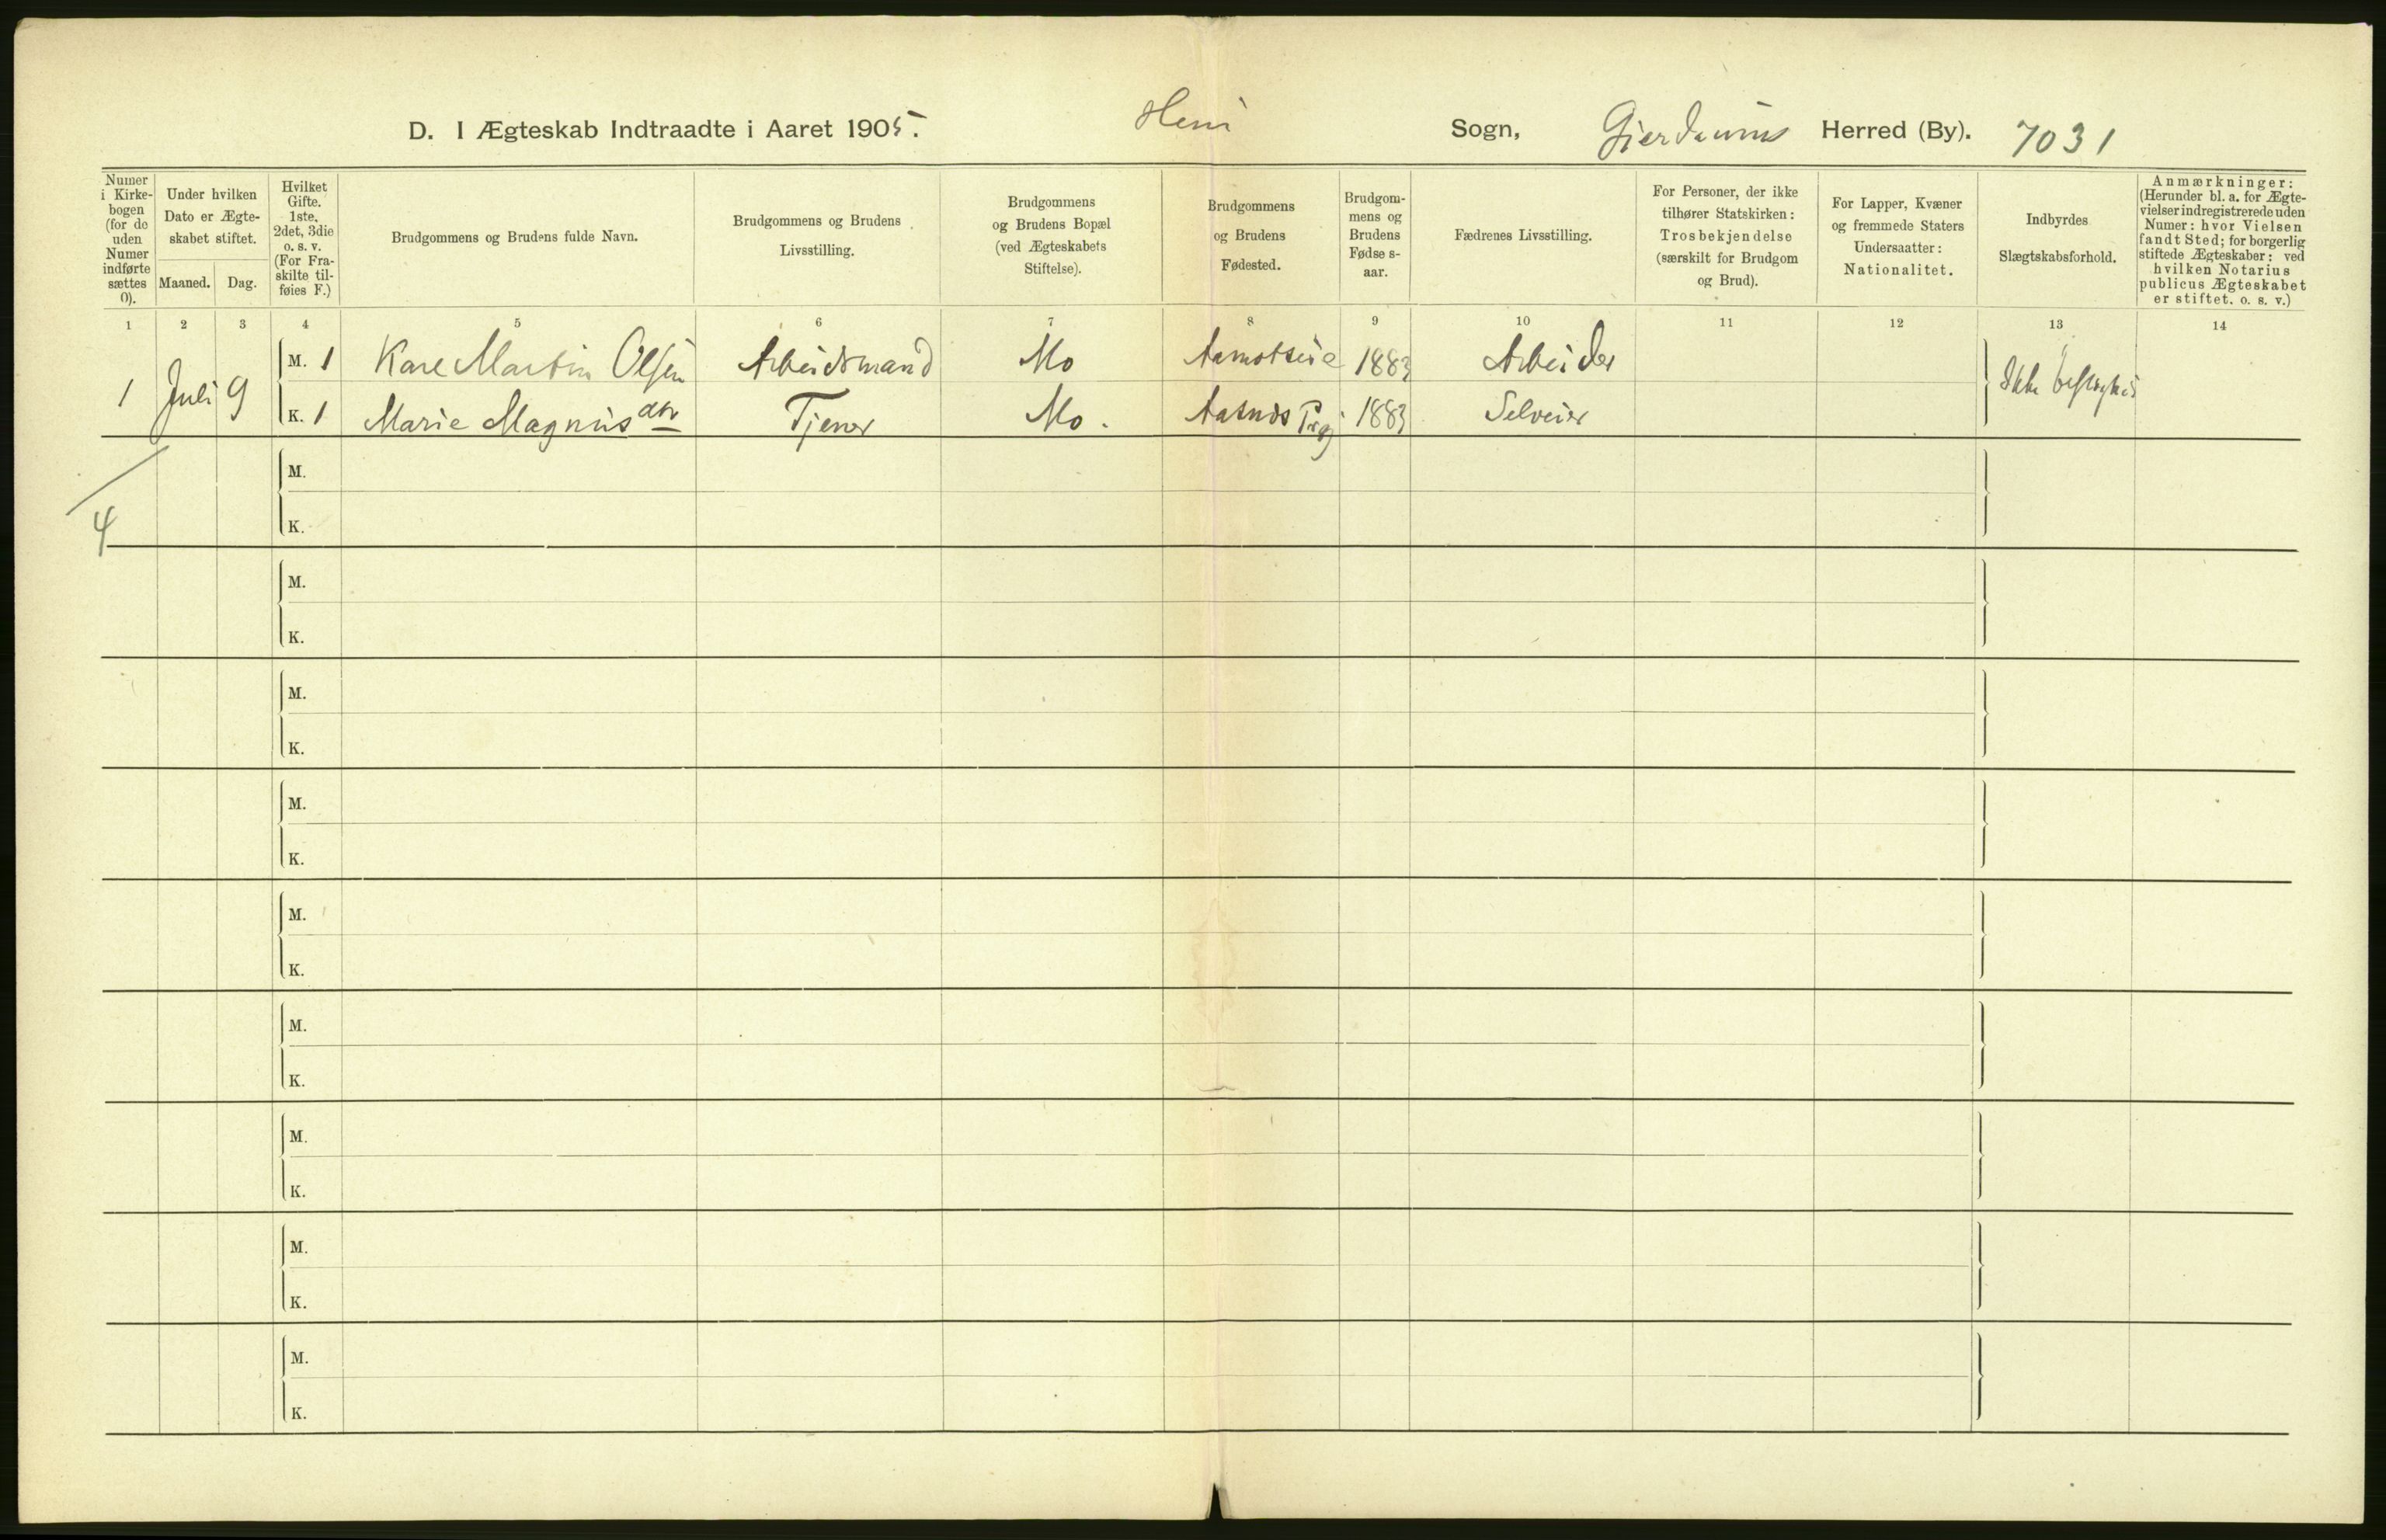 D. I Ægteskab Indtraadte i Aaret 1905. Heni Sogn, Gjerdrums Herred (By). 7031
Numer i Kirkebogen (for de uden Numer indførte sættes 0).
Under hvilken Dato er Ægteskabet stiftet.
Maaned. Dag.
Hvilket Gifte. 1ste, 2det, 3die o. s. v. (For Fraskilte tilføies F.)
Brudgommens og Brudens fulde Navn.
Brudgommens og Brudens Livsstilling.
Brudgommens og Brudens Bopæl (ved Ægteskabets Stiftelse).
Brudgommens og Brudens Fødested.
Brudgommens og Brudens Fødse s-aar.
Fædrenes Livsstilling.
For Personer, der ikke tilhører Statskirken: Trosbekjendelse (særskilt for Brudgom og Brud).
For Lapper, Kvæner og fremmede Staters Undersaatter: Nationalitet.
Indbyrdes Slægtskabsforhold.
Anmærkninger: (Herunder bl. a. for Ægtevielser indregistrerede uden Numer: hvor Vielsen fandt Sted; for borgerlig stiftede Ægteskaber: ved hvilken Notarius publicus Ægteskabet er stiftet. o. s. v.)
1 2 3 4 5 6 7 8 9 10 11 12 13 14
1 Juli 9
M. 1 Kare Martin Olsen Arbeidsmand Mo 1883 Arbeider
Ikke beslægtet
K. 1 Marie Magnusdtr Tjener Mo. Aasnes Prgj. 1883 Selveier
M.
K.
4
M.
K.
M.
K.
M.
K.
M.
K.
M.
K.
M.
K.
M.
K.
M.
K.